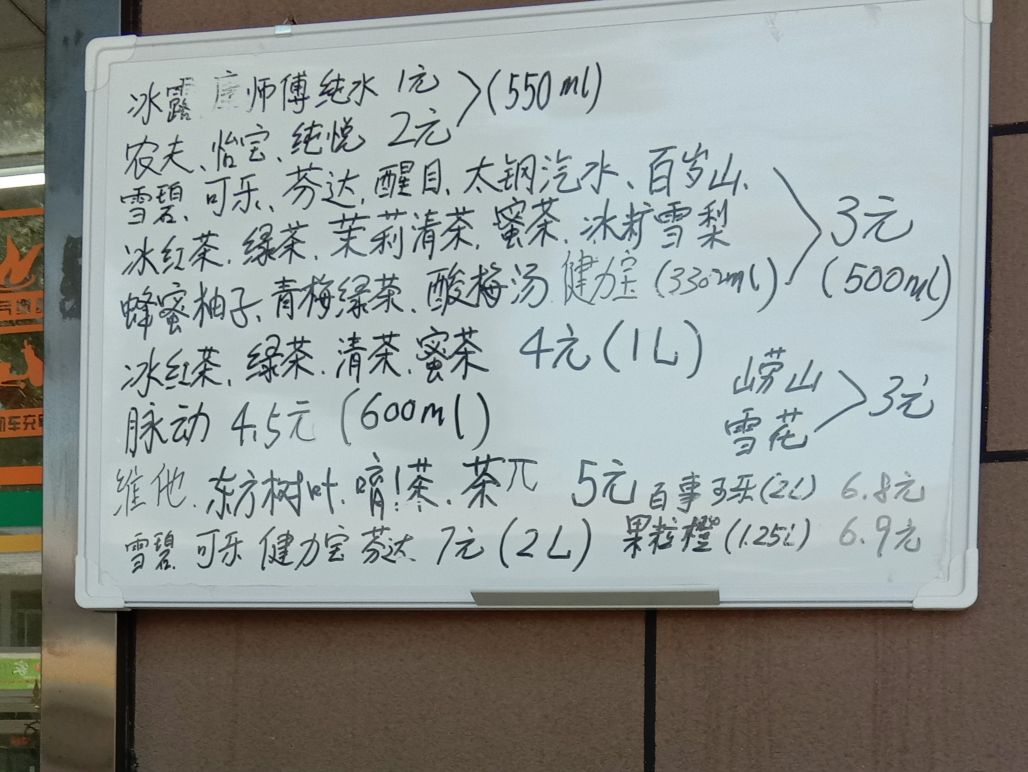 冰露 康师傅纯水 1元
(550ml)
农夫、怡宝、纯悦 2元
雪碧、可乐、芬达、醒目、太钢汽水、百岁山、
冰红茶、绿茶、茉莉清茶、蜜茶、冰糖雪梨
3元
蜂蜜柚子、青梅绿茶、酸梅汤 健力宝(3302ml)
(500ml)
冰红茶、绿茶、清茶、蜜茶 4元(1L)
崂山
雪花
3元
脉动 4.5元 (600ml)
维他、东方树叶、唷!茶、茶π 5元 百事可乐(2L) 6.8元
雪碧 可乐 健力宝 芬达 7元(2L) 果粒橙(1.25L) 6.9元